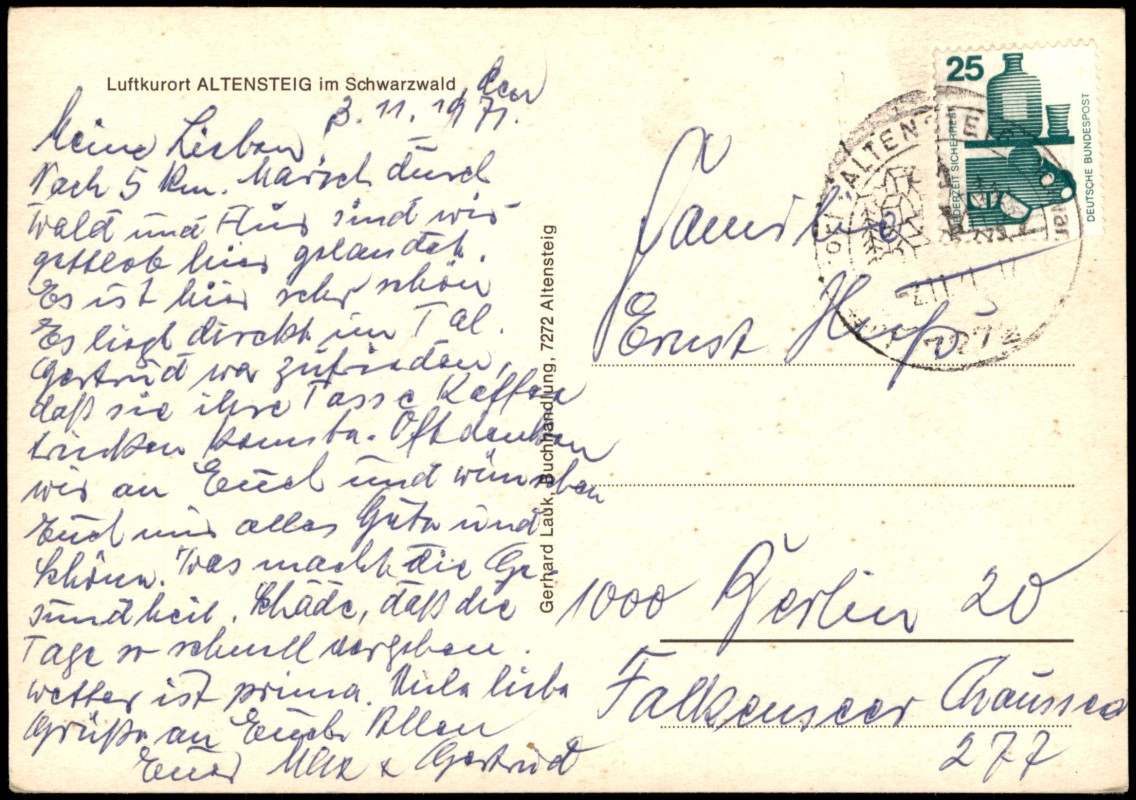 Luftkurort ALTENSTEIG im Schwarzwald
den
3.11.1971.
Meine Lieben
Nach 5 Km. Marsch durch
Wald und Flur sind wir
gottlob hier gelandet.
Es ist hier sehr schön
Es liegt direkt im Tal.
Gertrud war zufrieden,
daß sie ihre Tasse Kaffee
trinken konnte. Oft denken
wir an Euch und wünschen
Euch nur alles Gute und
Schöne. Was macht die Ge-
sundheit. Schade, daß die
Tage so schnell vergehen.
Wetter ist prima. Viele liebe
Grüße an Euch Allen
Euer Max & Gertrud
Gerhard Lauk, Buchhandlung, 7272 Altensteig
25
JEDERZEIT SICHERHEIT
DEUTSCHE BUNDESPOST
ALTENSTEIG
7272
Familie
Ernst
1000 Berlin 20
Falkenseer Chaussee
277